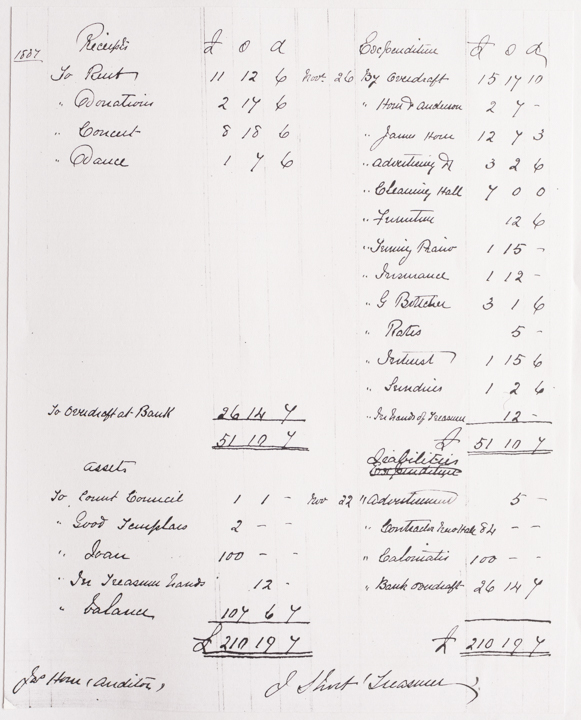 Receipts £ s d Expenditure £ s d
1887
To Rent 11 12 6 Nov 26 By Overdraft 15 17 10
" Donations 2 17 6 " Horn & Anderson 2 7 -
" Concert 8 18 6 " James Horn 12 7 3
" Dance 1 7 6 " Advertising 3 2 6
" Cleaning Hall 7 0 0
" Furniture 12 6
" Tuning Piano 1 15 -
" Insurance 1 12 -
" G Bottcher 3 1 6
" Rates 5 -
" Interest 1 15 6
" Sundries 1 2 6
To Overdraft at Bank 26 14 7 " In hands of Treasurer 12 -
51 10 7 £ 51 10 7
Liabilities
Assets Expenditure
To Council 1 1 - Nov 22 " Advertisement 5 -
" Good Templars 2 - - " Contractor Hall 84 - -
" Loan 100 - - " 100 - -
" In Treasurer hands 12 - " Bank overdraft 26 14 7
" balance 107 6 7
£ 210 19 7 £ 210 19 7
Jas Horn (Auditor) J Short (Treasurer)